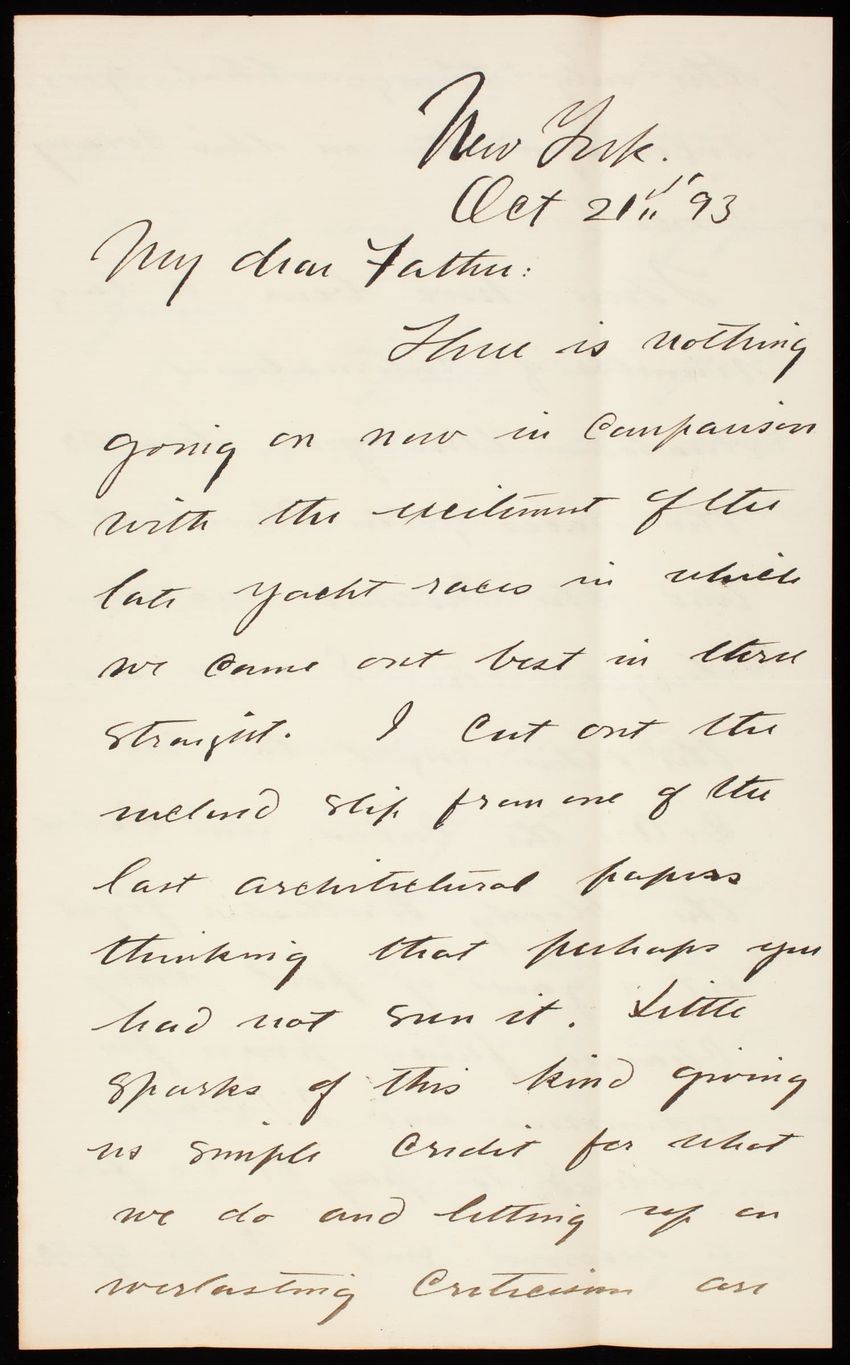 New York.
Oct 21st 93
My dear Father:
There is nothing
going on now in comparison
with the excitement of the
late Yacht races in which
we came out best in three
straight. I cut out the
inclosed slip from one of the
last architectural papers
thinking that perhaps you
had not seen it. Little
sparks of this kind giving
us simple credit for what
we do and letting up on
everlasting criticism are